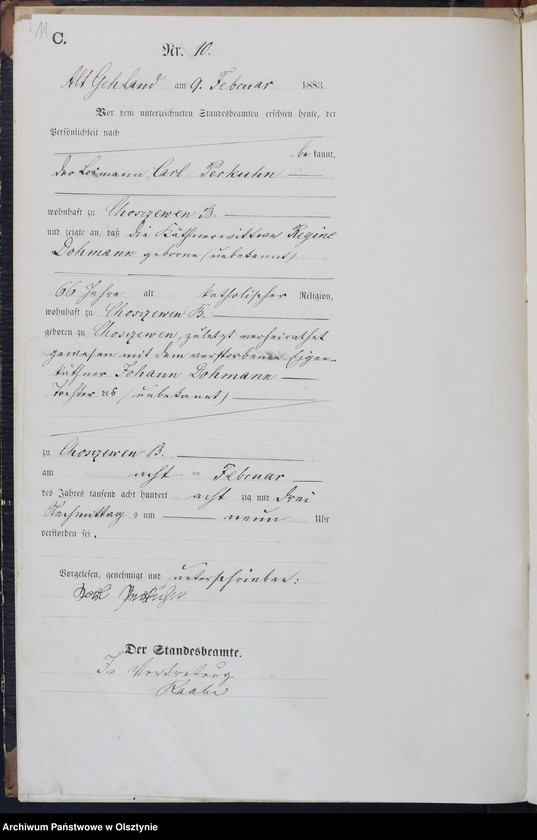 11
C.
Nr. 10.
Alt Gehland am 9. Februar 1883.
Vor dem unterzeichneten Standesbeamten erschien heute, der
Persönlichkeit nach
be kannt,
der Losmann Carl Perkuhn
wohnhaft zu Choszewen B.
und zeigte an, daß die Käthnerwittwe Regine
Dohmann geborne (unbekannt)
66 Jahre alt katholischer Religion,
wohnhaft zu Choszewen B.
geboren zu Choszewen, zuletzt verheirathet
gewesen mit dem verstorbenen Eigen-
käthner Johann Dohmann
Tochter des (unbekannt)
zu Choszewen B.
am acht ten Februar
des Jahres tausend acht hundert acht zig und drei
Nachmittag s um neun Uhr
verstorben sei.
Vorgelesen, genehmigt und unterschrieben:
Carl Perkuhn
Der Standesbeamte.
In Vertretung
Raabe
Archiwum Państwowe w Olsztynie